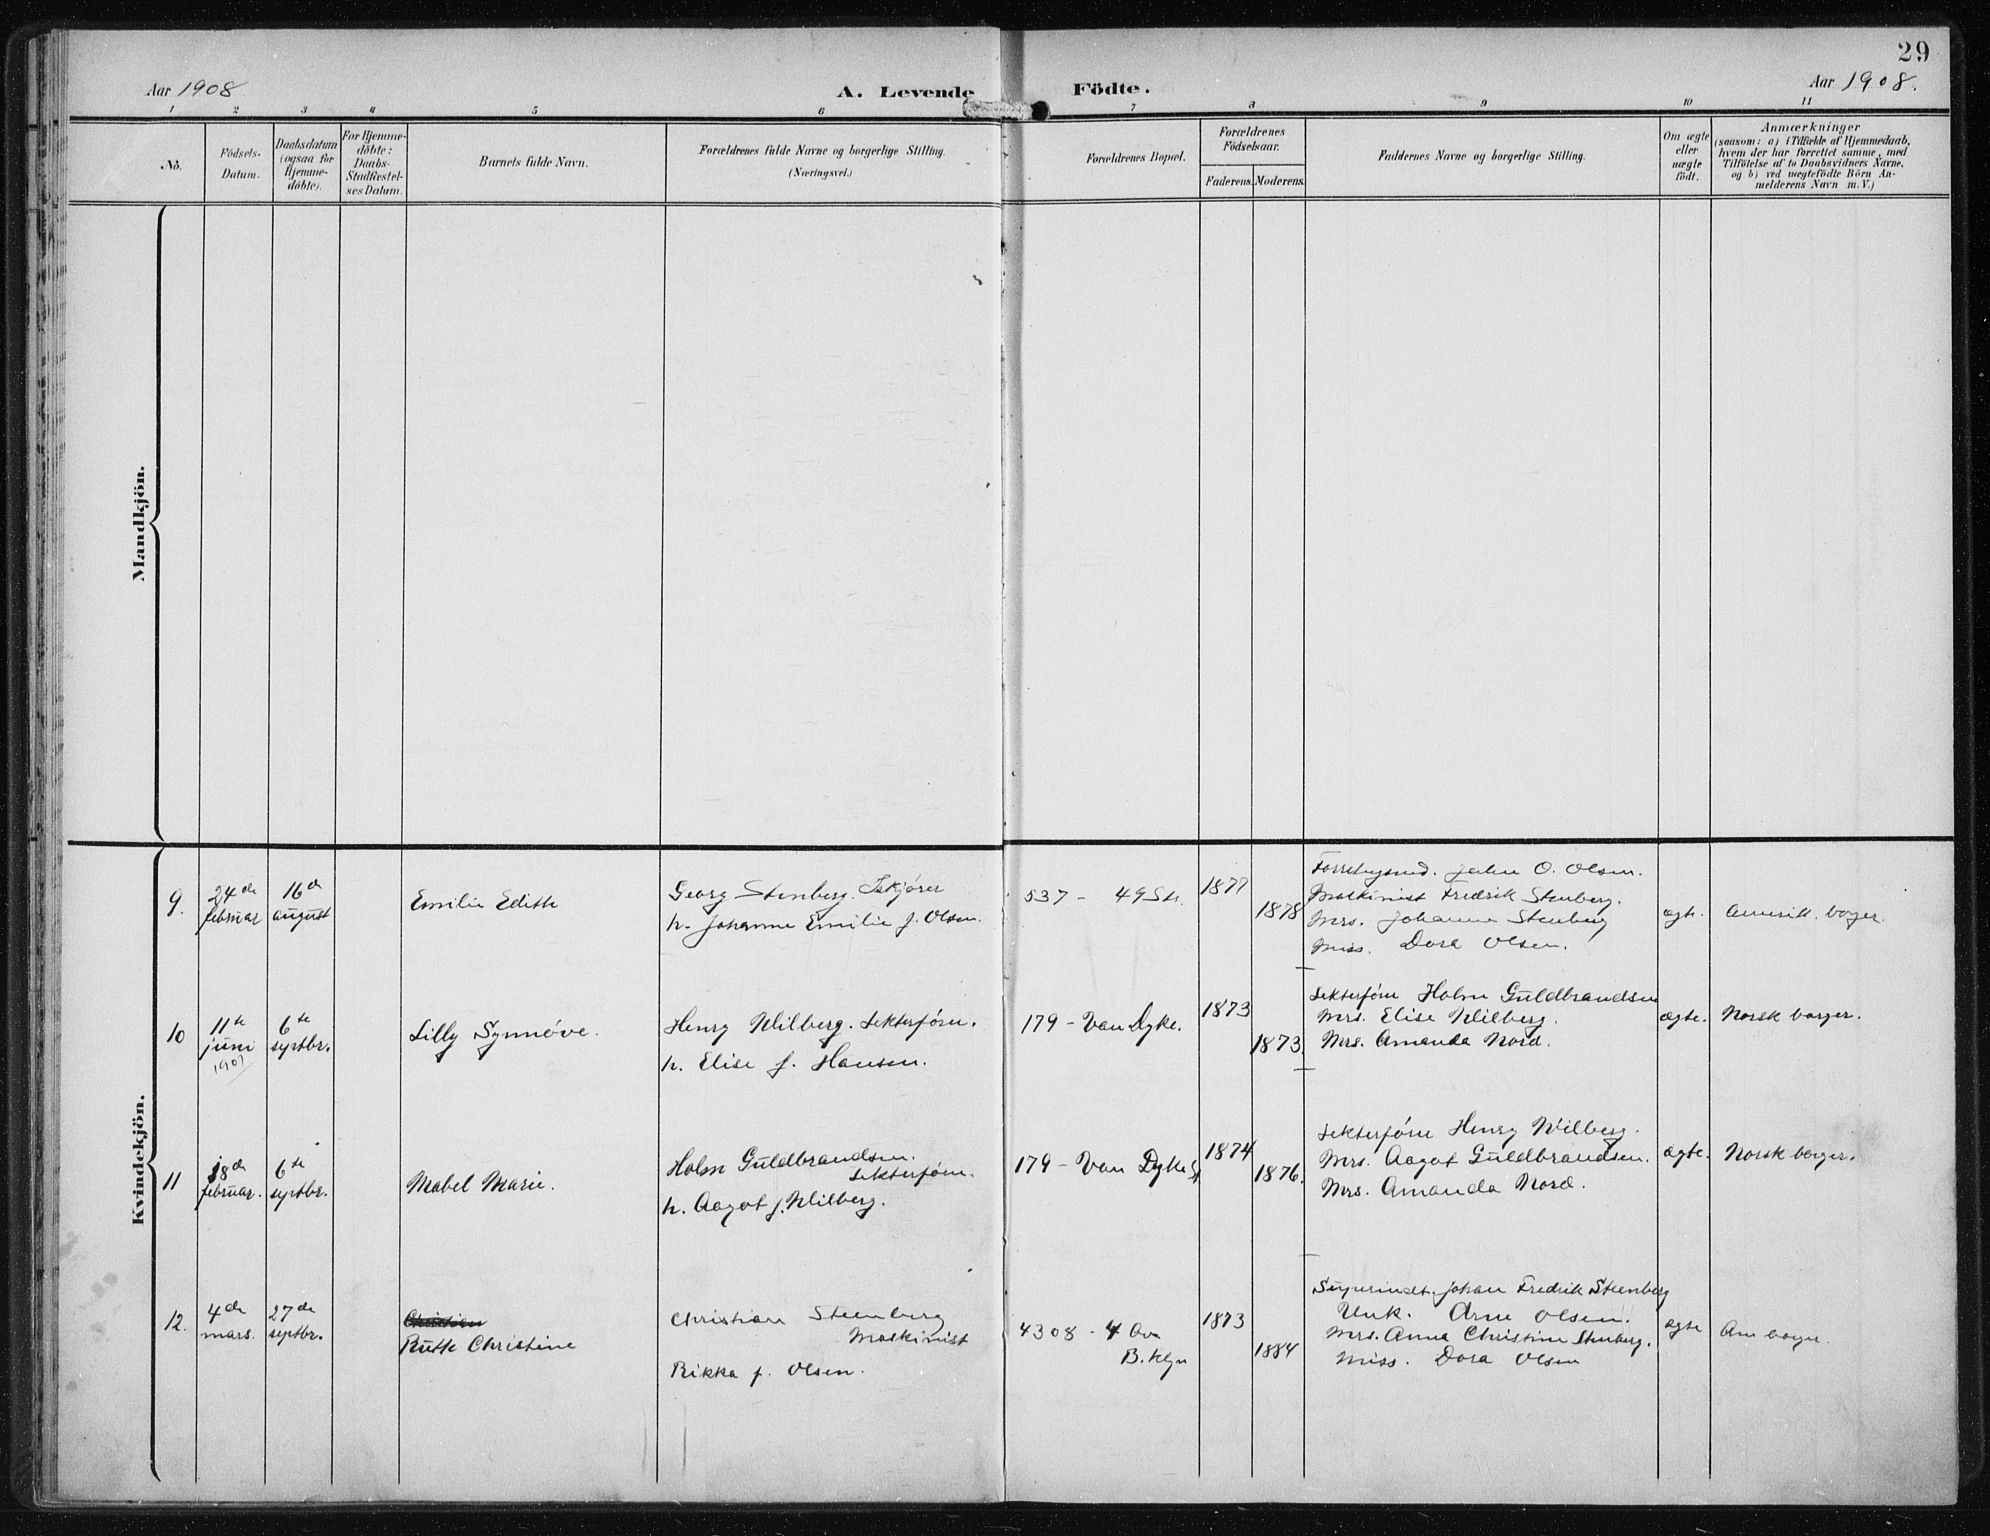 29
Aar 1908
A. Levende
Födte.
Aar 1908.
1 2 3 4 5 6 7 8 9 10 11
No.
Födsels-
Datum.
Daabsdatum
(ogsaa for
Hjemme-
döbte).
For Hjemme-
döbte:
Daabs-
Stadfæstel-
ses Datum.
Barnets fulde Navn.
Forældrenes fulde Navne og borgerlige Stilling.
(Næringsvei.)
Forældrenes Bopæl.
Forældrenes
Födselsaar.
Faderens.
Moderens.
Faddernes Navne og borgerlige Stilling.
Om ægte
eller
uægte
födt.
Anmærkninger
(saasom: a) i Tilfælde af Hjemmedaab,
hvem der har forrettet samme, med
Tilföielse af to Daabsvidners Navne,
og b) ved uægtefödte Börn An-
melderens Navn m. V.)
Mandkjön.
Kvindekjön.
9.
24de
februar
16de
august
Emilie Edith
Georg Stenberg.
h. Johanne Emilie f. Olsen.
537 - 49 St.
1877
1878
John O. Olsen.
Maskinist Fredrik Stenberg.
Mrs. Johanne Stenberg
Miss. Dora Olsen.
ægte.
Amerik. borger.
10
11te
juni
1907
6te
septbr.
Lilly Synnöve.
Henry Wilberg.
h. Elise f. Hansen.
179 - Van Dyke.
1873
1873.
Holm Guldbrandsen
Mrs. Elise Wilberg.
Mrs. Amanda Nord.
ægte.
Norsk borger.
11
18de
februar.
6te
septbr.
Mabel Marie.
Holm Guldbrandsen.
h. Aagot f. Wilberg.
179 - Van Dyke St
1874
1876.
Henry Wilberg.
Mrs. Aagot Guldbrandsen.
Mrs. Amanda Nord.
ægte.
Norsk borger.
12.
4de
mars.
27de
septbr.
Christian
Ruth Christine
Christian Steenberg
Maskinist
Rikka f. Olsen.
4308 - 4 Ave
B.klyn
1873
1884
Superindt. Johan Fredrik Steenberg
Unk. Arne Olsen.
Mrs. Anna Christine Stenberg.
Miss. Dora Olsen
ægte
Am borger.